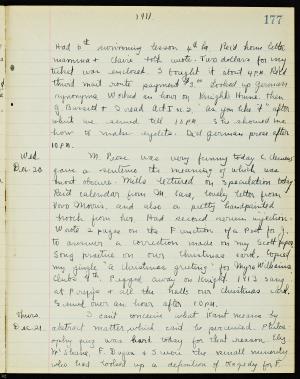 1911
177
Had 6th swimming lesson. Rec'd home letter
mamma & Claire both wrote. Two dollars for my
ticket was enclosed. I bought it about 4 P.M. Rec'd
third mail route payment $3. Looked up German
synonyms. Worked an hour on Knights Hume. Then
G. Bassett & I read Act I no 2 "as you like it" after
which we sewed till 10 P.M. She showed me
how to make eyelets. Did German prose after
10 P.M.
Wed. M. Reese was very funny today C. Clemens
Dec 20 gave a sentence the meaning of which was
most obscure. Mills lectured on Speculation today
Rec'd calendar from M. Case, lovely letter from
Vero Morris, and also a pretty handpainted
from her. Had second sewin
Wrote 2 pages on the Function of a Poet for J.
to answer a correction made on my Scott paper
Song practice on our Christmas card. Copied
my jingle "a Christmas greeting" for Myra Williams
Pegged away on Knight. 1913 sang
at Peirce all the halls our Christmas card.
Sewed over an hour after 10 P.M.
Thurs. I can't conceive what Kant means by
Dec 21. abstract matter which can't be perceived. Philos
ophy quiz was hard today for that reason. Chy.
McShane, F. Dugan & I were the small minority
who had looked up a definition of Tragedy for F.